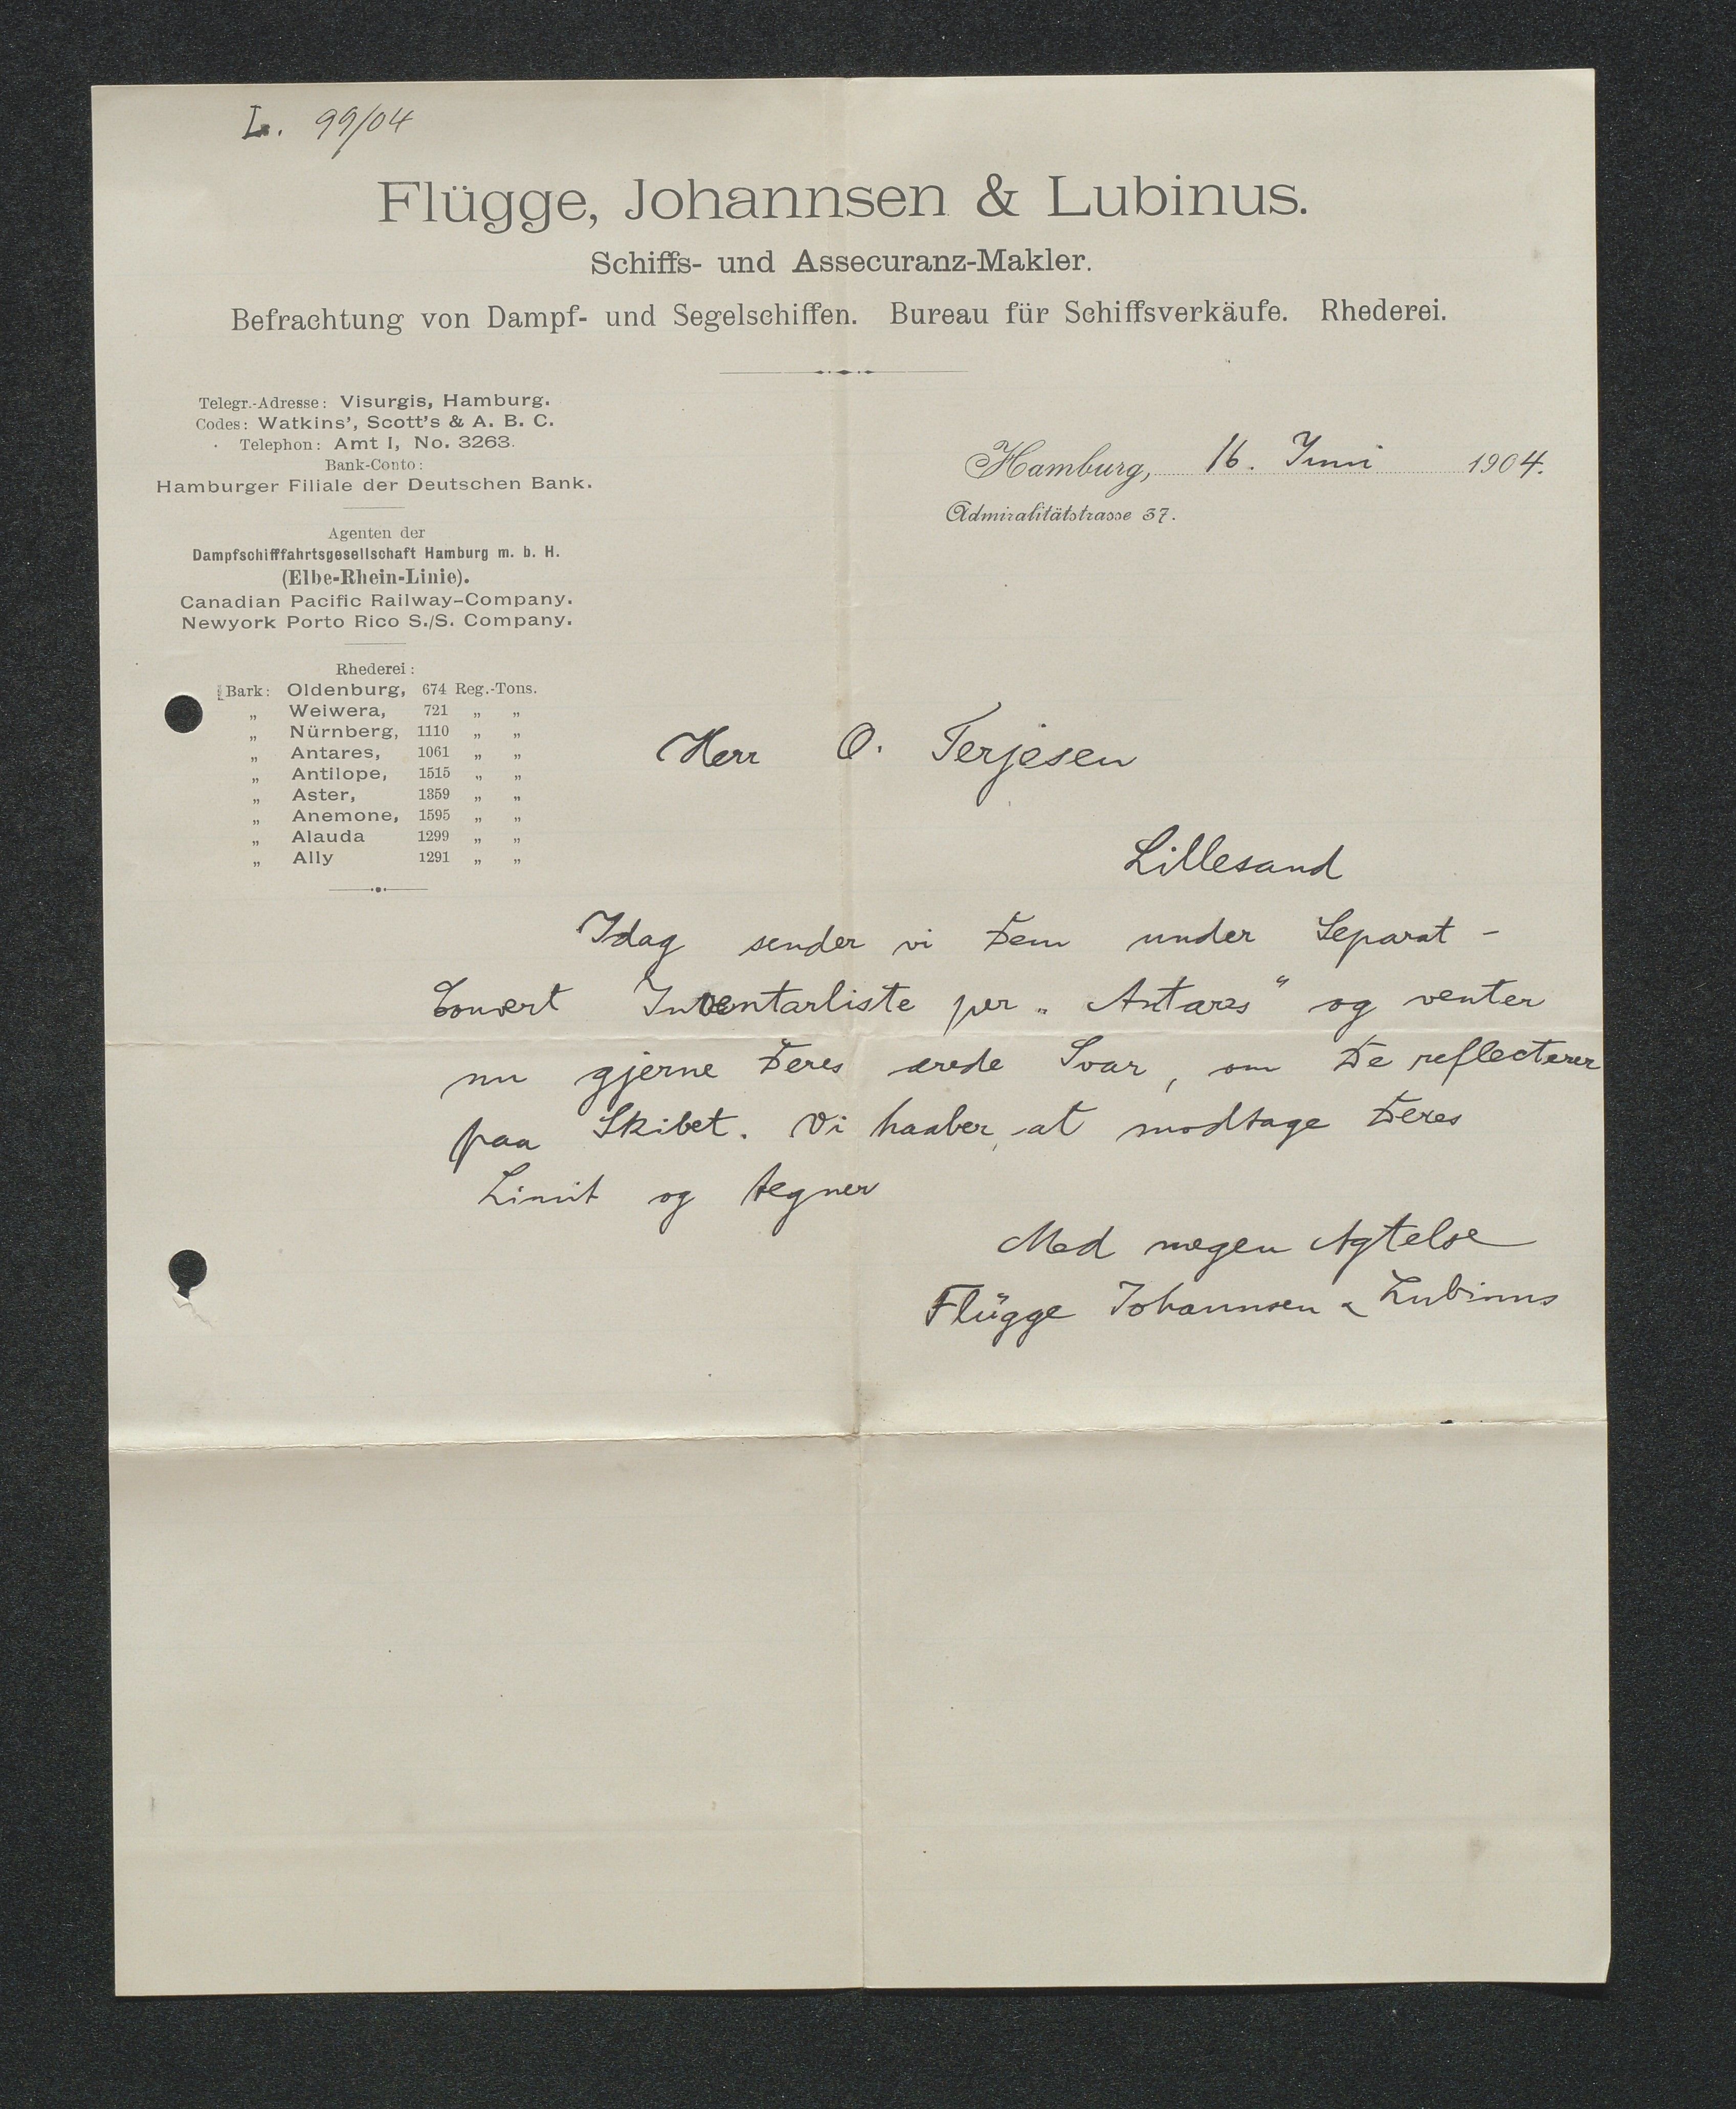 L. 99/04
Flügge, Johannsen & Lubinus.
Schiffs- und Assecuranz-Makler.
Befrachtung von Dampf- und Segelschiffen. Bureau für Schiffsverkäufe. Rhederei.
Telegr.-Adresse: Visurgis, Hamburg.
Codes: Watkins', Scott's & A. B. C.
Telephon: Amt I, No. 3263.
Bank-Conto:
Hamburger Filiale der Deutschen Bank.
Agenten der
Dampfschifffahrtsgesellschaft Hamburg m. b. H.
(Elbe-Rhein-Linie).
Canadian Pacific Railway-Company.
Newyork Porto Rico S./S. Company.
Rhederei:
Bark: Oldenburg, 674 Reg.-Tons.
„ Weiwera, 721 „ „
„ Nürnberg, 1110 „ „
„ Antares, 1061 „ „
„ Antilope, 1515 „ „
„ Aster, 1359 „ „
„ Anemone, 1595 „ „
„ Alauda 1299 „ „
„ Ally 1291 „ „
Hamburg, 16. Juni 1904.
Admiralitätstrasse 37.
Herr O. Terjesen
Lillesand
Idag sender vi Dem under Separat-
Couvert Inventarliste per „Antares" og venter
nu gjerne Deres ærede Svar, om De reflecterer
paa Skibet. Vi haaber, at modtage Deres
Limit og tegner
Med megen Agtelse
Flügge Johannsen & Lubinus